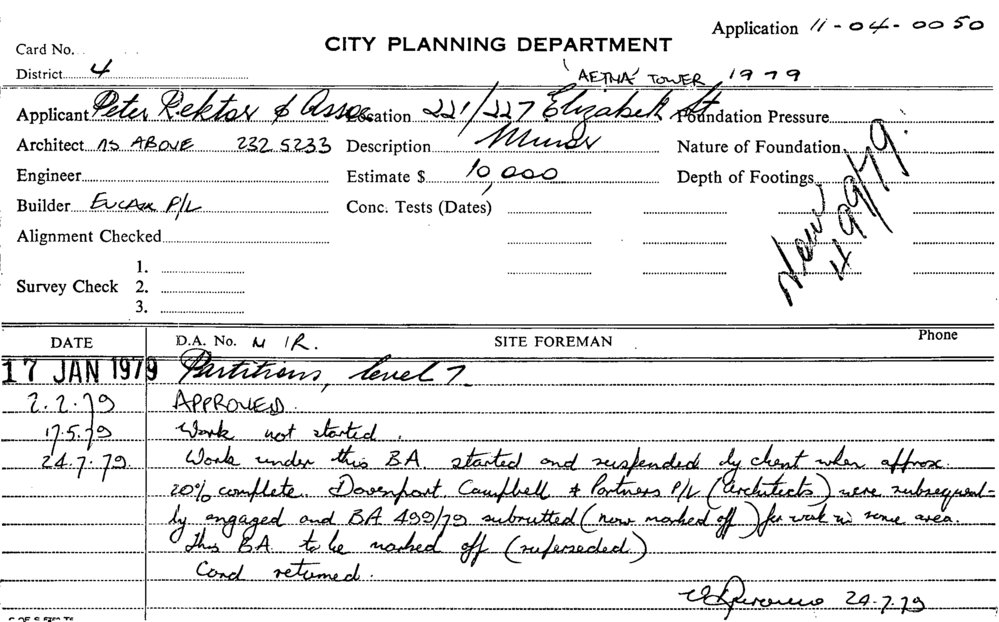 Application 11-04-0050
Card No.
CITY PLANNING DEPARTMENT
District 4
'AETNA' TOWER 1979
Applicant Peter Rektor & Assoc Location 221/227 Elizabeth St Foundation Pressure
Architect AS ABOVE 232 5233 Description Minor Nature of Foundation
Engineer Estimate $ 10,000 Depth of Footings
Builder P/L Conc. Tests (Dates)
499/79
Alignment Checked
1.
Survey Check 2.
3.
DATE D.A. No. N/R. SITE FOREMAN Phone
17 JAN 1979 Partitions, level 7
2.2.79 APPROVED.
17.5.79 Work not started.
24.7.79. Work under this BA. started and suspended by client when approx.
20% complete. Davenport Campbell & Partners P/L (architects) were subsequent-
ly engaged and BA 499/79 submitted (now marked off) for work in same area.
This BA. to be marked off (superseded)
Card returned.
24.7.79